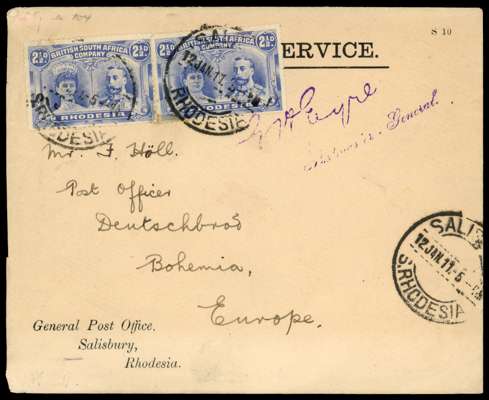 S 10
BRITISH SOUTH AFRICA
COMPANY
2½D 2½D
RHODESIA
BRITISH SOUTH AFRICA
COMPANY
2½D 2½D
RHODESIA
SERVICE.
SAL
12 JAN. 11
RHODESIA
RHODESIA
G H Eyre
General.
Mr. F. Höll.
Post Officer
Deutschbrod
Bohemia,
Europe.
SALIS
12 JAN. 11. 5
S. RHODESIA
General Post Office.
Salisbury,
Rhodesia.